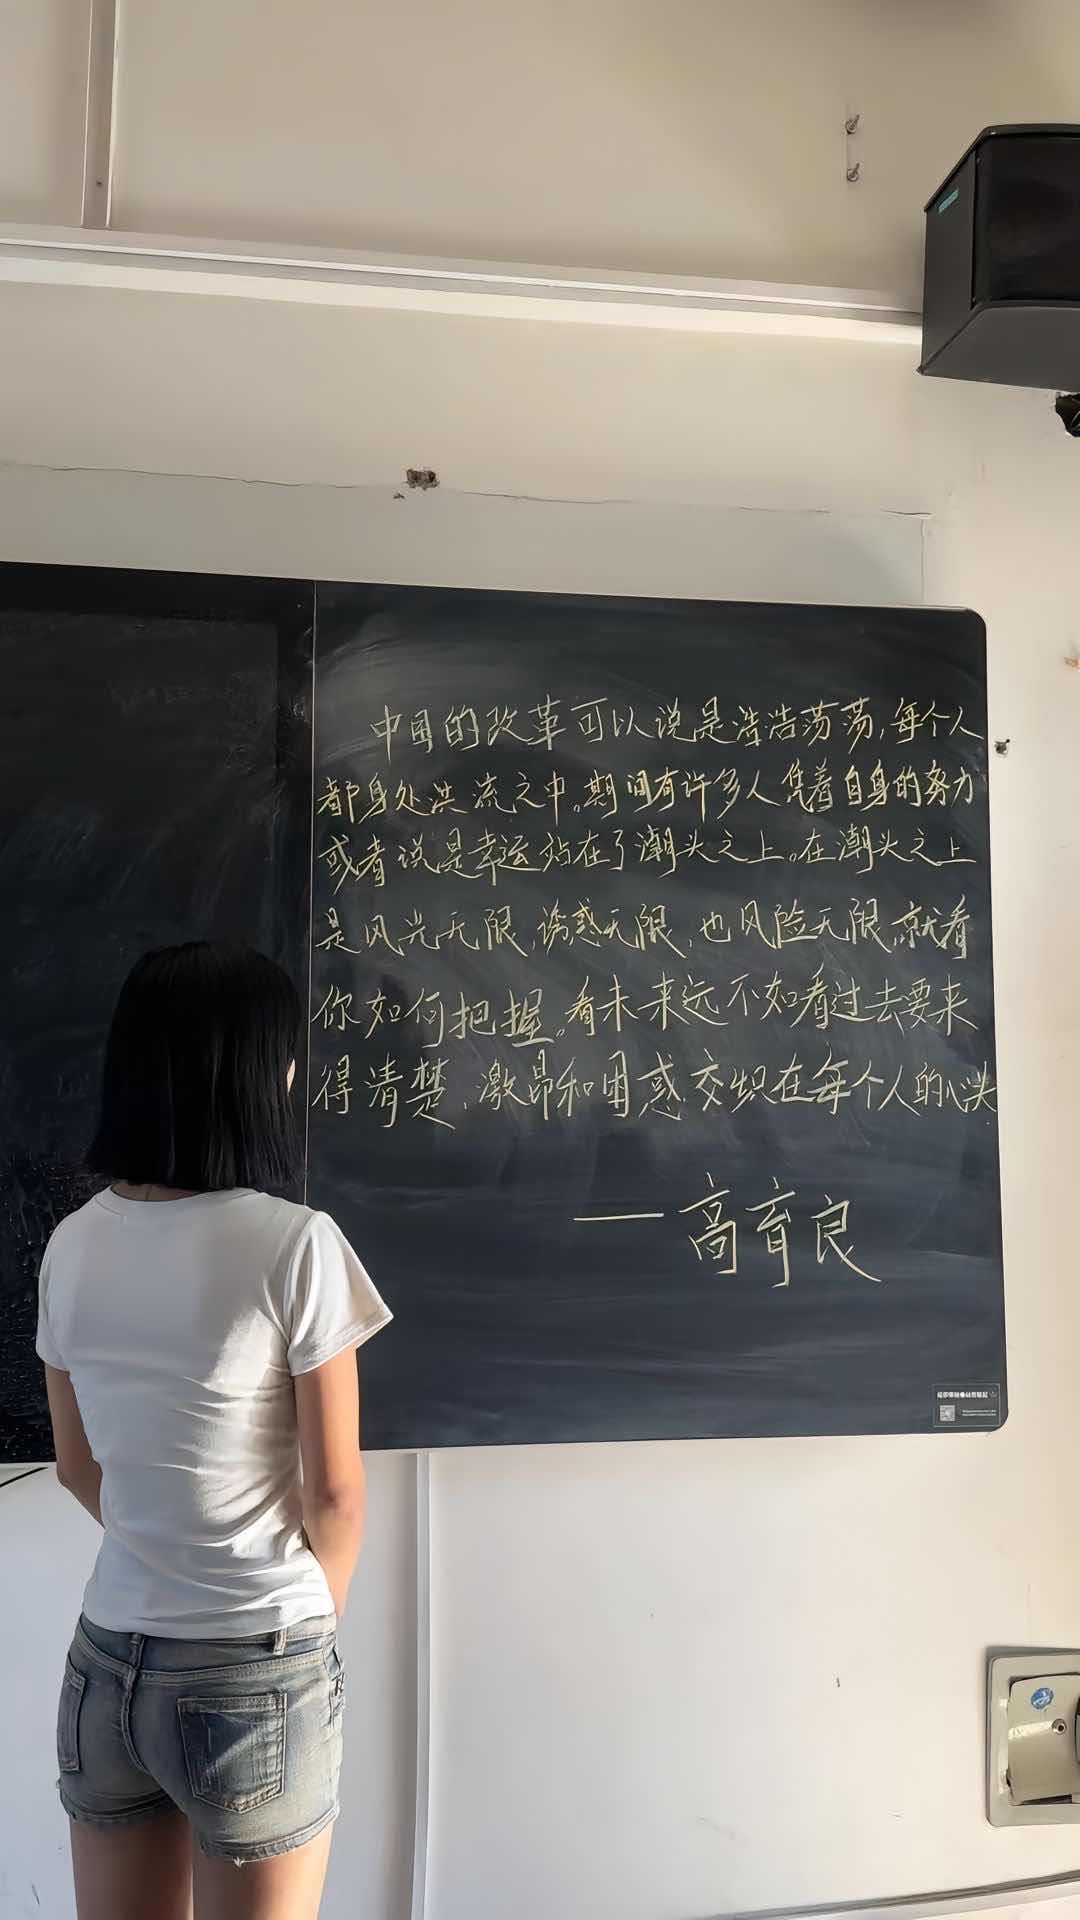 中国的改革可以说是浩浩荡荡,每个人
都身处洪流之中。期间有许多人凭着自身的努力
或者说是幸运站在了潮头之上。在潮头之上
是风光无限,诱惑无限,也风险无限,就看
你如何把握。看未来远不如看过去要来
得清楚,激昂和困惑交织在每个人的心头
—高育良